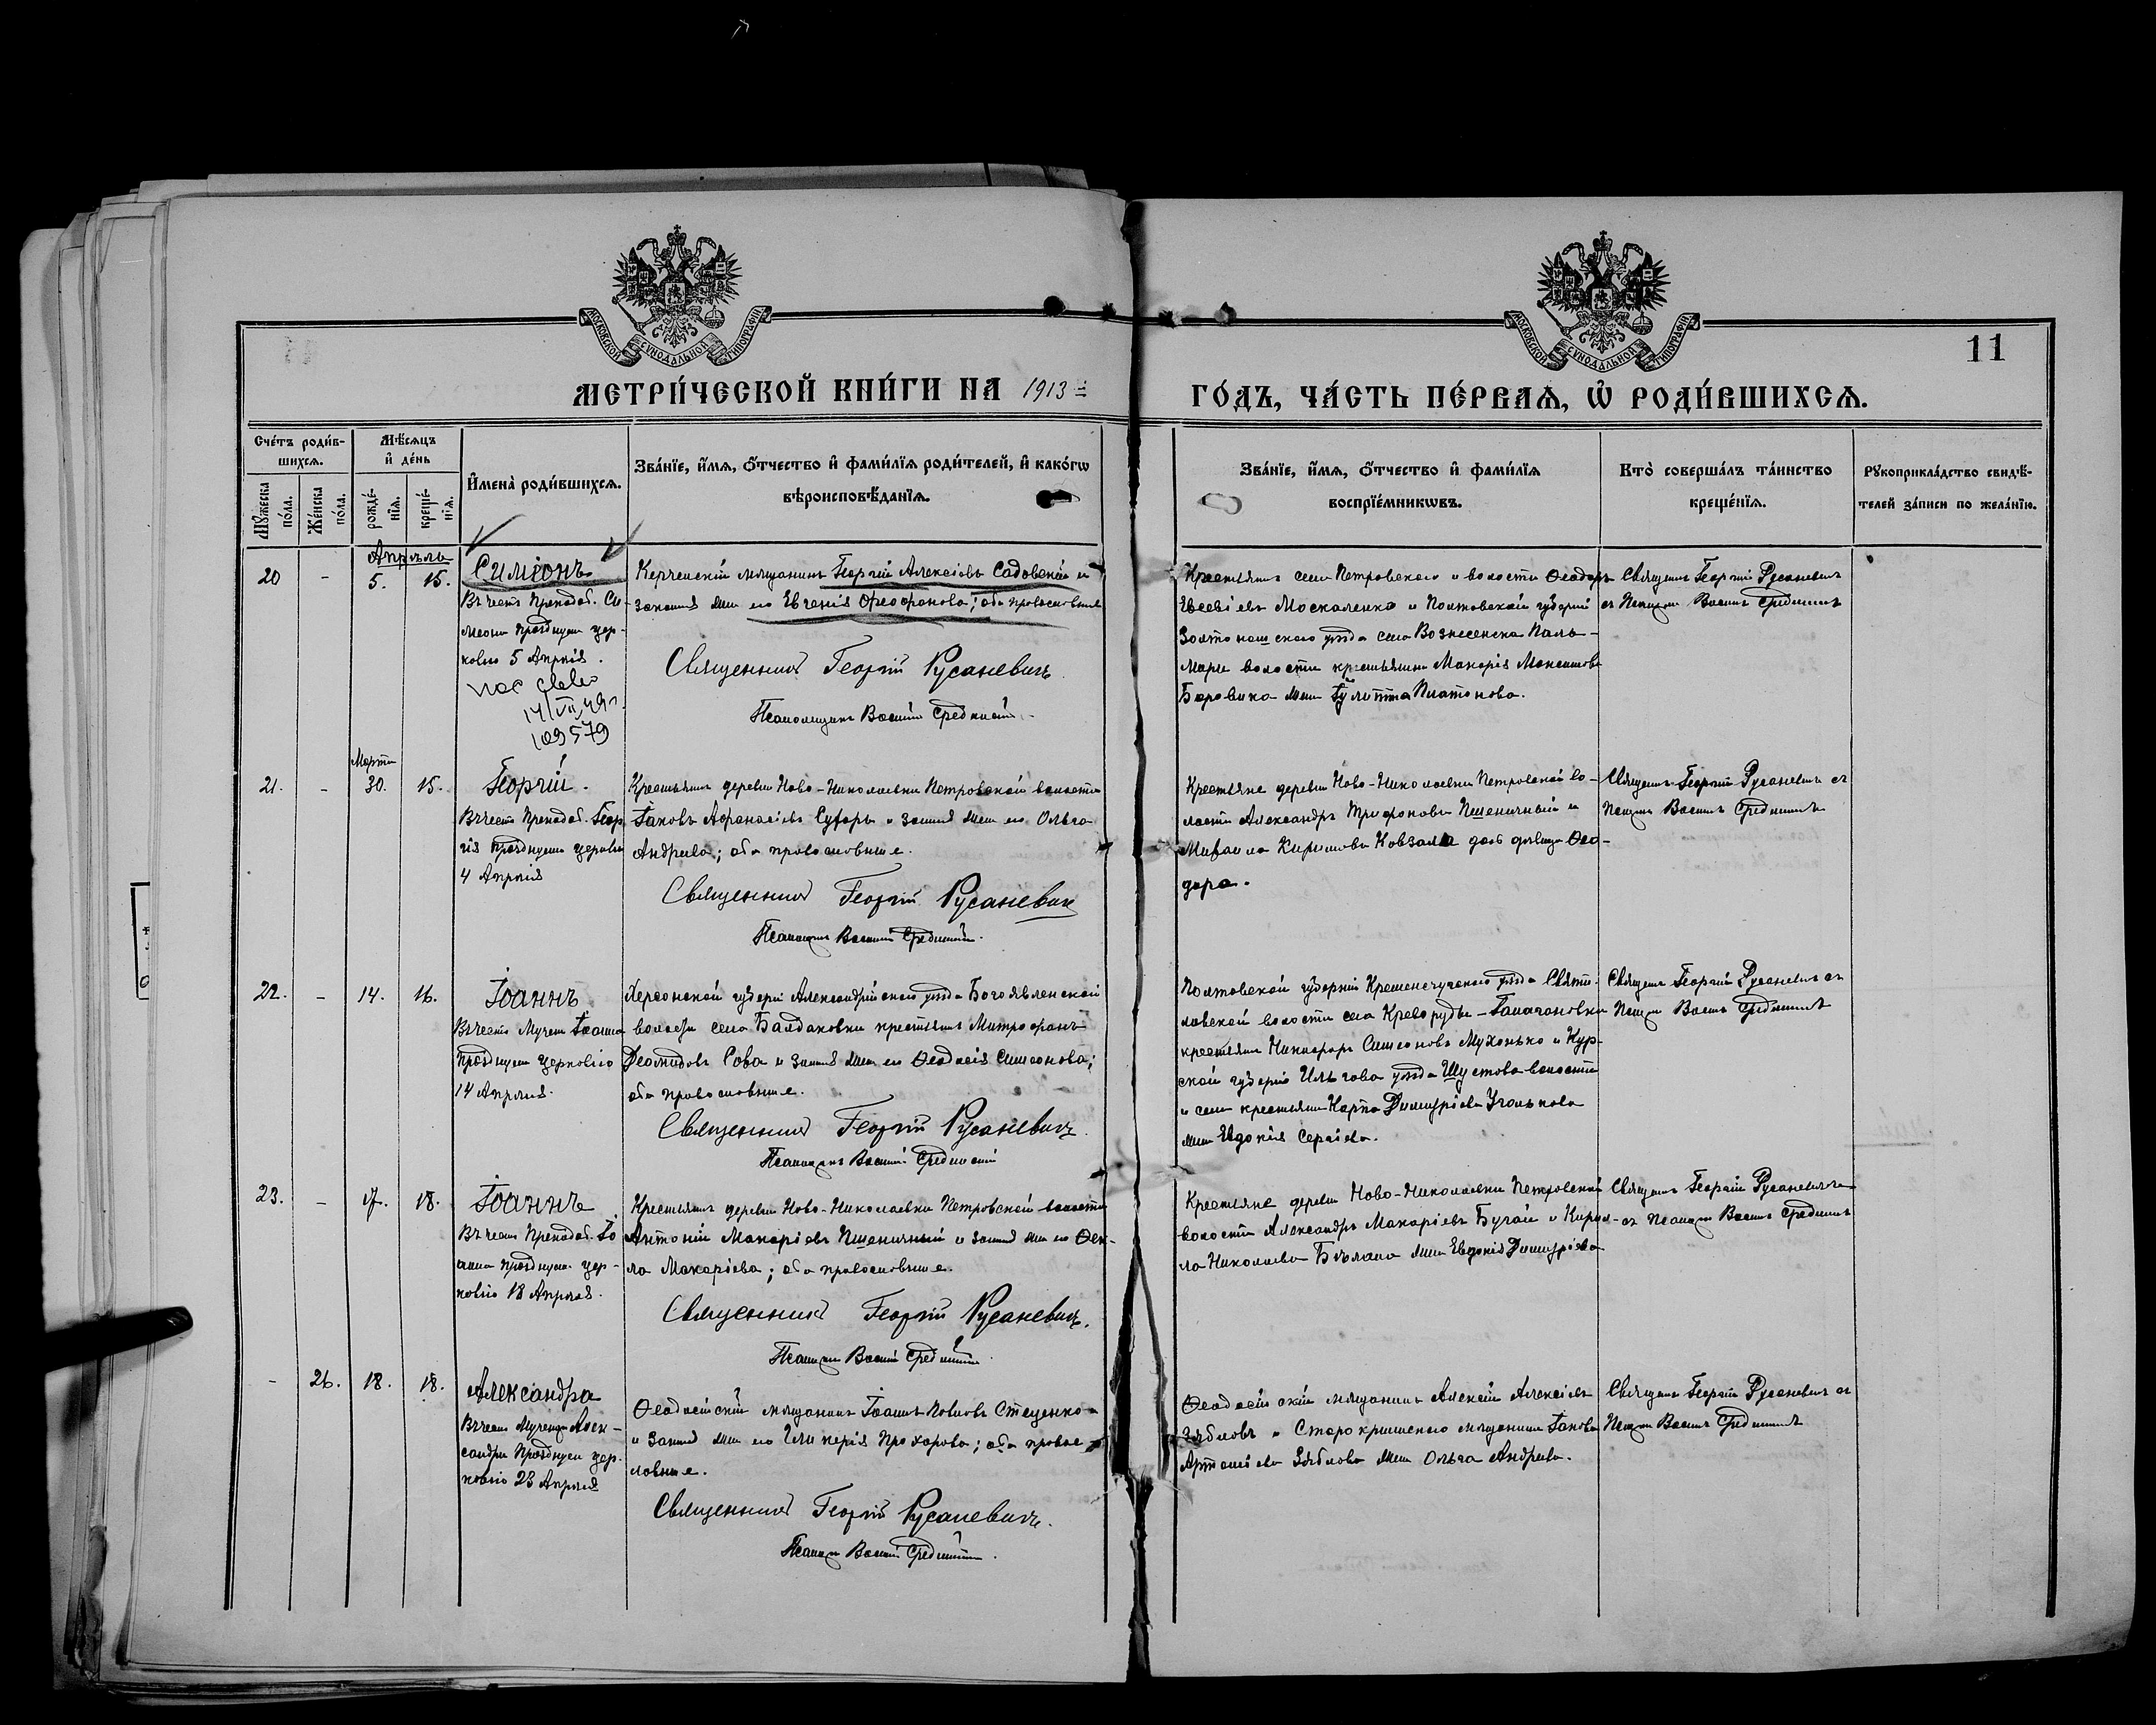 МОСКОВСКОЙ СѴНОДАЛЬНОЙ ТИПОГРАФІИ
МОСКОВСКОЙ СѴНОДАЛЬНОЙ ТИПОГРАФІИ
11
МЕТРИ́ЧЕСКОЙ КНИ́ГИ НА 1913й ГО́ДЪ, ЧА́СТЬ ПЕ́РВАѦ, Ѡ҆ РОДИ́ВШИХСѦ.
Сче́тъ роди́в-
шихсѧ.
Мѣ́сѧцъ
и҆ де́нь
И҆мена̀ роди́вшихсѧ.
Зва́нїе, и҆́мѧ, ѻ҆́тчество и҆ фами́лїѧ роди́телей, и҆ како́гѡ
вѣроисповѣ́данїѧ.
Зва́нїе, и҆́мѧ, ѻ҆́тчество и҆ фами́лїѧ
воспрїе́мникѡвъ.
Кто̀ соверша́лъ та́инство
креще́нїѧ.
Рꙋкоприкла́дство свидѣ́-
телей за́писи по жела́нїю.
Мꙋ́жеска
по́ла.
Же́нска
по́ла.
рожде́-
нїѧ.
креще́-
нїѧ.
Апрѣль
20 - 5. 15.
Симеонъ
Въ честь Преподоб. Си-
меона празднуем цер-
ковію 5 Апрѣля.
14/VII 49г.
109579
Керченскій мѣщанинъ Георгій Алексіевъ Садовскій и
законная жена его Евгенія Феофанова; оба православные
Священникъ Георгій Русаневичъ
Псаломщикъ Василій Средницкій
Крестьянинъ села Петровского и волости Феодоръ
Евсевіевъ Москаленко и Полтовской губерніи
Золтоношского уѣзда села Вознесенска Паль-
мари волости крестьянина Макарія Максимова
Боровика жена Іулитта Платонова.
Священ. Георгій Русаневичъ
съ Псалом. Васил. Средницк
Марта
21. - 30. 15.
Георгій.
Въ честь Преподоб. Геор-
гія празднуем церковью
4 Апрѣля
Крестьянинъ деревни Ново-Николаевки Петровской волости
Іаковъ Афанасіевъ и закон жена его Ольга
Андреева; оба православные.
Священникъ Георгій Русаневич
Псаломщикъ Василій Средницкій.
Крестьяне деревни Ново-Николаевки Петровской во-
лости Александръ Трифоновъ Пшеничный и
Михаила Кирилова Ковзала дочь дѣвица Фео-
дора.
Священ. Георгій Русаневичъ съ
Псалом. Васил. Средницк
22. - 14. 16.
Іоаннъ
Въ честь Мучен Іоанна
празднуем церковію
14 Апрѣля.
Херсонской губерніи Александрійского уѣзда Богоявленской
волости села Балдаковки крестьянинъ Митрофанъ
Деомидовъ Сова и закон жена его Феодосія Симеонова;
оба православные.
Священникъ Георгій Русаневичъ
Псаломщикъ Василій Средницкій
Полтовской губерніи Кременчугского уѣзда
волости села
крестьянинъ Никифоръ Симеоновъ Мухонько и Кур-
ской губерніи Льгова уѣзда Шустова волости
и села крестьянина Карпа Димитріева Уголькова
жена Евдокія Сергіева.
Священ. Георгій Русаневичъ съ
Псалом Васил. Средницк
23. - 17. 18.
Іоаннъ
Въ честь Преподоб. Іо-
анна празднуем цер-
ковію 18 Апрѣля.
Крестьянинъ деревни Ново-Николаевки Петровской волости
Антоній Макаріевъ Пшеничный и закон жена его Фек-
ла Макаріева; оба православные
Священникъ Георгій Русаневичъ.
Псаломщ Василій Средницкій
Крестьяне деревни Ново-Николаевки Петровской
волости Александръ Макаріевъ Бугай и Кирил-
ла Николаева Бѣлана жена Евдокія Димитріева
Священ. Георгій Русаневичъ
съ Псалом Васил. Средницк
- 26. 18. 18.
Александра
Въ честь Мученицы Алек-
сандры Празднуем цер-
ковію 23 Апрѣля
Феодосійскій мѣщанинъ Іоаннъ Павловъ Стеценко
и закон жена его Гликерія Прохорова; оба право-
славные.
Священникъ Георгій Русаневичъ.
Псаломщ Василій Средницкій.
Феодосійскій мѣщанинъ Алексій Алексіевъ
Зябловъ и Старокрымского мѣщанина Іакова
Артеміева Зяблова жена Ольга Андреева.
Священ. Георгій Русаневичъ съ
Псалом Васил. Средницк